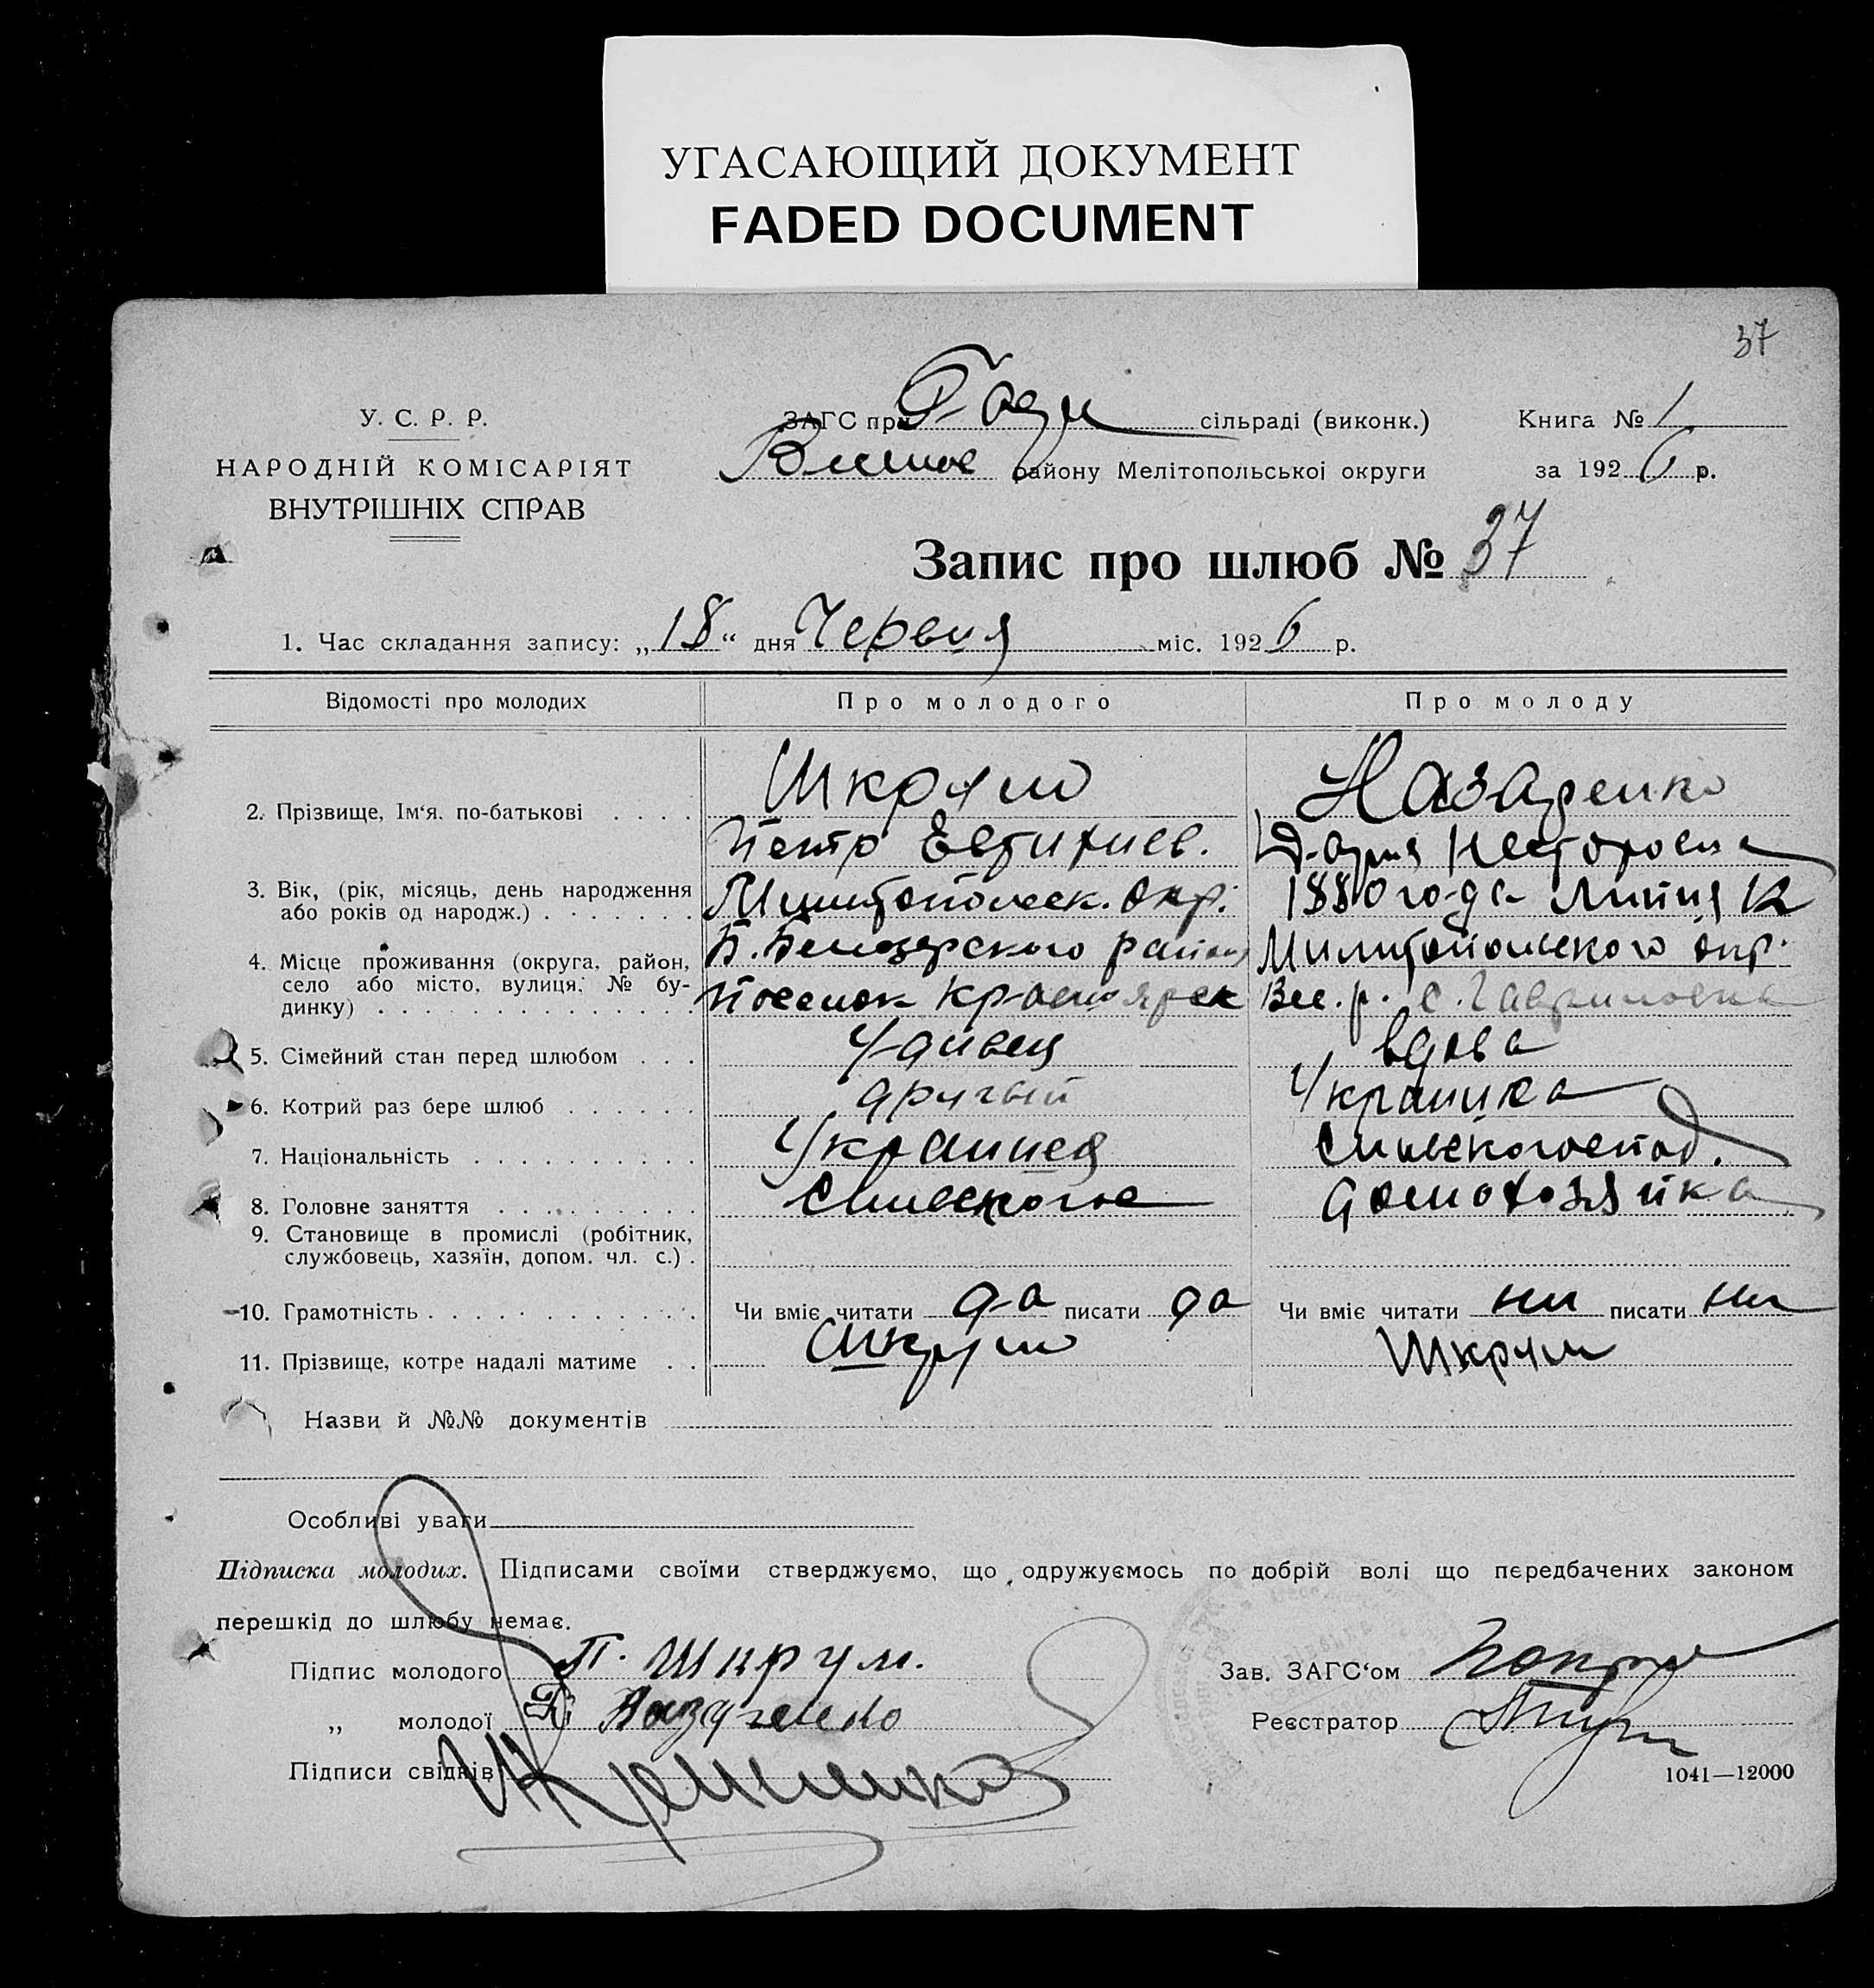 УГАСАЮЩИЙ ДОКУМЕНТ
FADED DOCUMENT
37
У. С. Р. Р.
НАРОДНІЙ КОМІСАРІЯТ
ВНУТРІШНІХ СПРАВ
ЗАГС при сільраді (виконк.)
району Мелітопольської округи
Книга № 1
за 1926 р.
Запис про шлюб № 37
1. Час складання запису: „18“ дня Червня міс. 1926 р.
Відомості про молодих Про молодого Про молоду
2. Прізвище, Ім‘я. по-батькові . . . . Шкрум Назаренко
Петр Евтихиев. Дария Несторовна
3. Вік, (рік, місяць, день народження
або років од народж.) . . . . . . . Милитопольск. окр. 1880 года Липня 12
4. Місце проживання (округа, район,
село або місто, вулиця, № бу-
динку) . . . . . . . . . . . . . . .
Б. Белозерского района Милитопольского окр.
Поселок Красноярск Вес. р. с. Гавриловка
5. Сімейний стан перед шлюбом . . . Удивец вдова
6. Котрий раз бере шлюб . . . . . . другый Украинка
7. Національність . . . . . . . . . . Украинец Сильскогоспод.
8. Головне заняття . . . . . . . . . Сильскогос домохозяйка
9. Становище в промислі (робітник,
службовець, хазяїн, допом. чл. с.) .
10. Грамотність . . . . . . . . . . . . Чи вміє читати да писати да Чи вміє читати ни писати ни
11. Прізвище, котре надалі матиме . . Шкрум Шкрум
Назви й №№ документів
Особливі уваги
Підписка молодих. Підписами своїми стверджуємо, що одружуємось по добрій волі що передбачених законом
перешкід до шлюбу немає.
Підпис молодого П. Шкрум.
„ молодої Д Назаренко
Підписи свідків
Зав. ЗАГС‘ом
Реєстратор
1041—12000